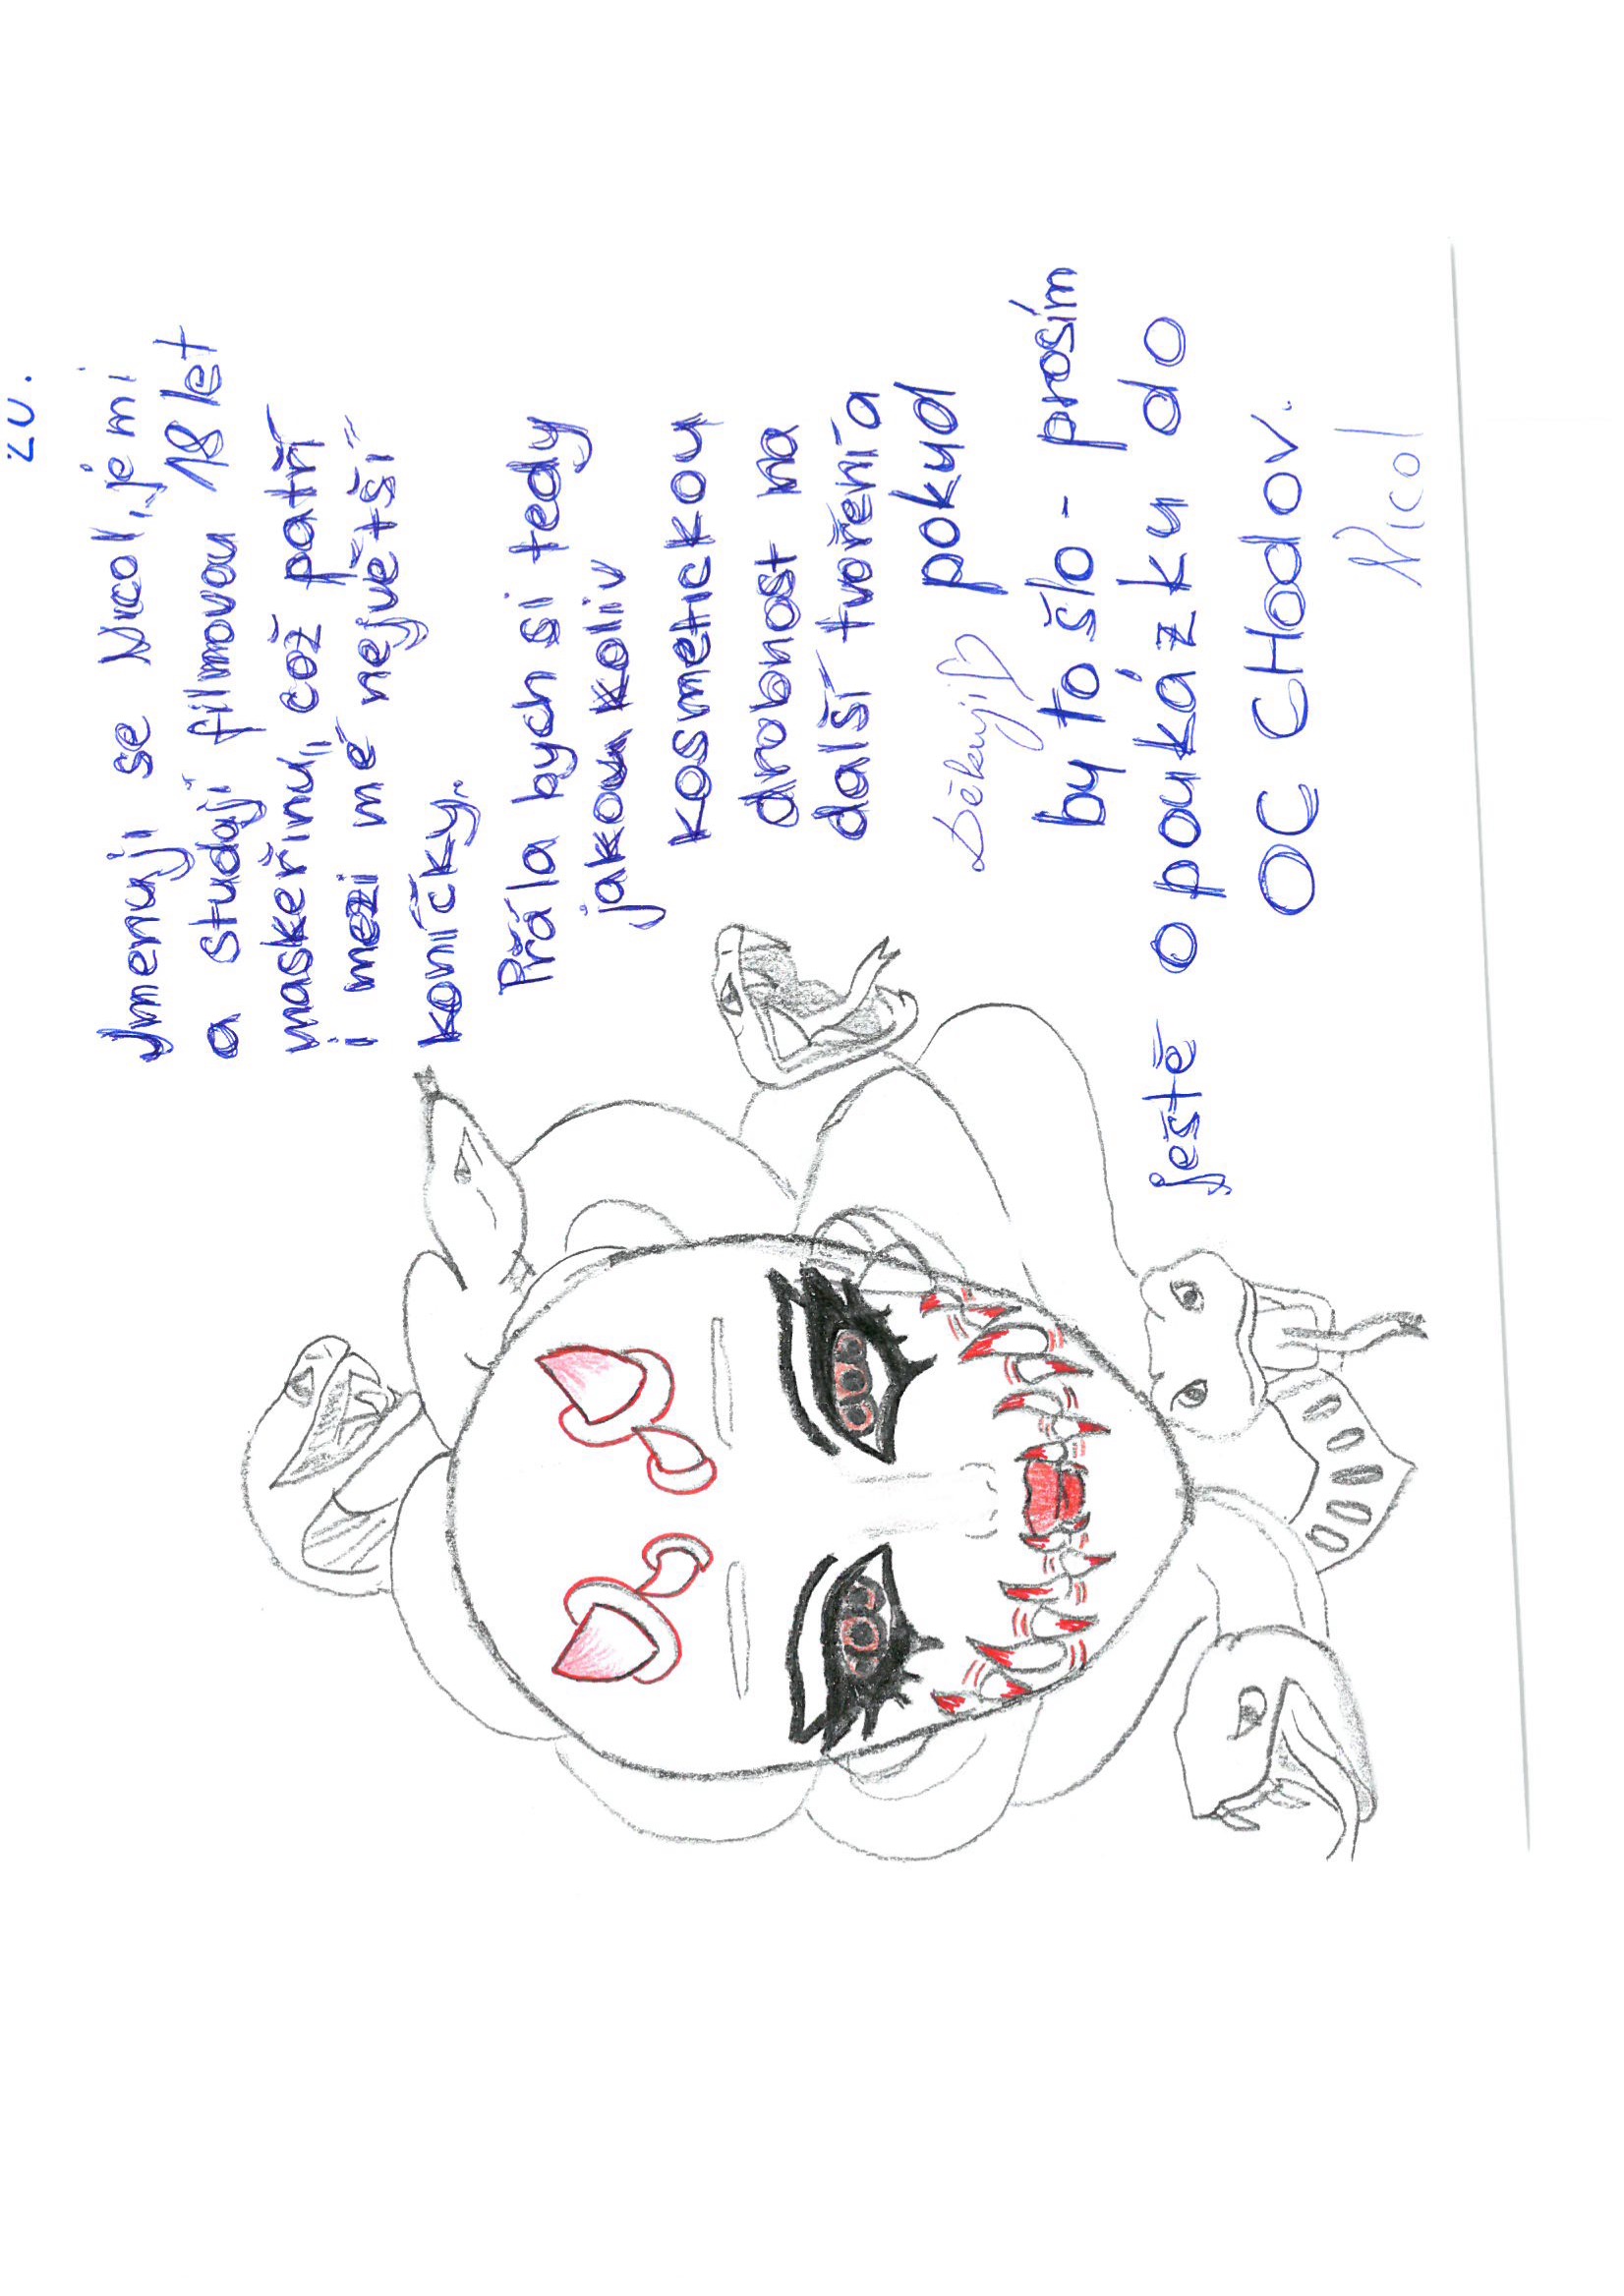 20.
Jmenuji se Nicol, je mi
a studuji filmovou 18 let
maskeřinu, což patří
i mezi mé nejvétší
koníčky.
Přála bych si tedy
jakoukoliv
kosmetickou
drobnost na
další tvoření a
Děkuji ♡ pokud
by to šlo - prosím
ještě o poukázku do
OC CHodov.
Nicol